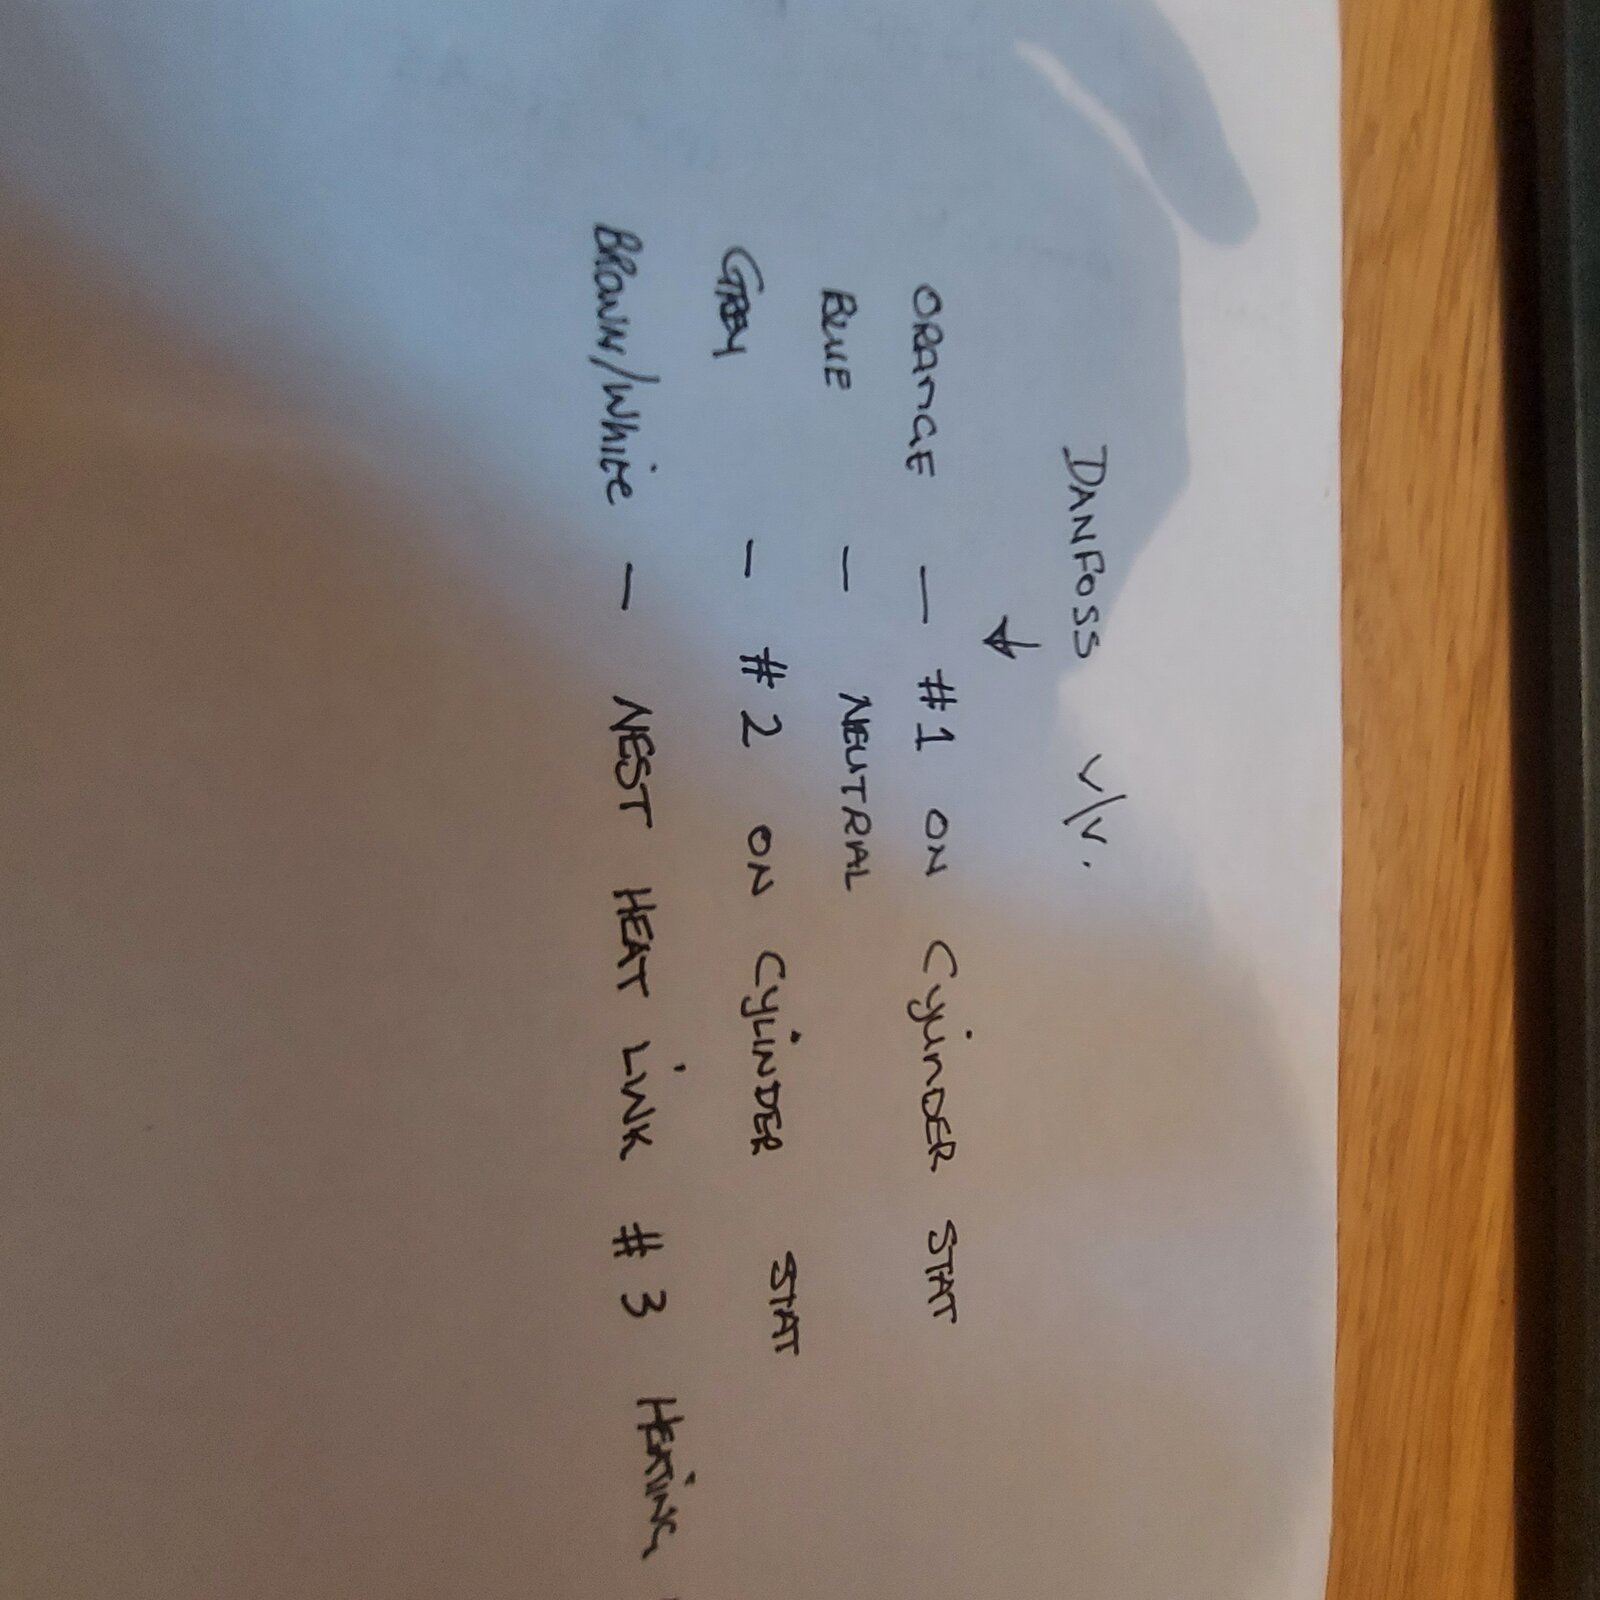 DANFOSS V/V.
ORANGE — #1 ON CYLINDER STAT
BLUE — NEUTRAL
GREY — #2 ON CYLINDER STAT
BROWN/WHITE — NEST HEAT LINK #3 HEATING